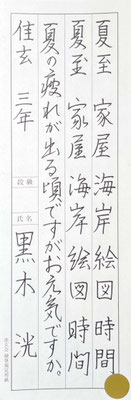 夏至 家屋 海岸 絵図 時間
夏至 家屋 海岸 絵図 時間
夏の疲れが出る頃ですがお元気ですか。
佳玄 三年
段級
氏名
黒木 洸